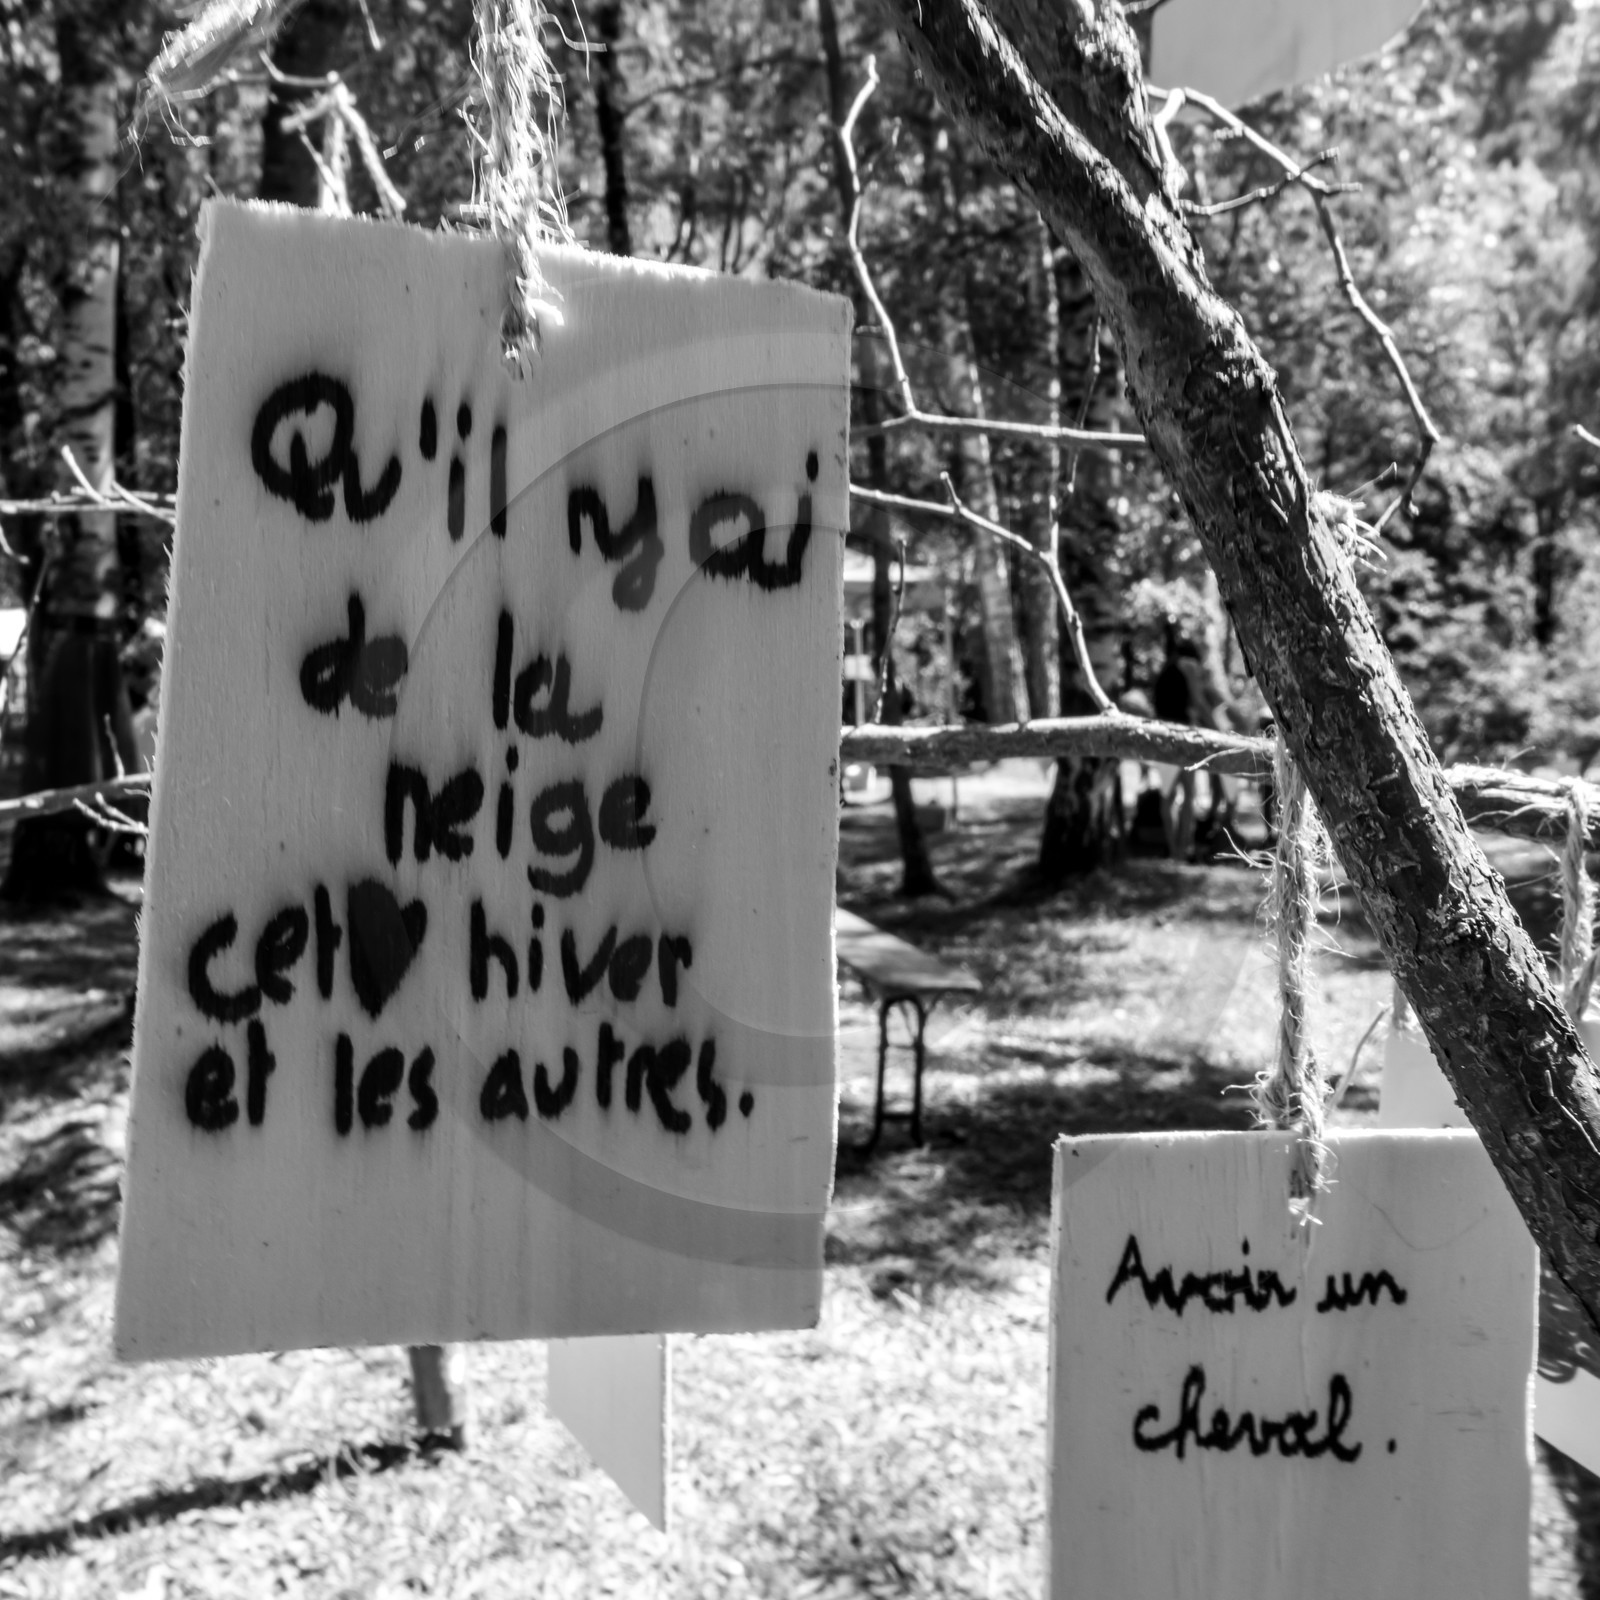 Qu'il y ai
de la
neige
cet♥ hiver
et les autres.
Avoir un
cheval.